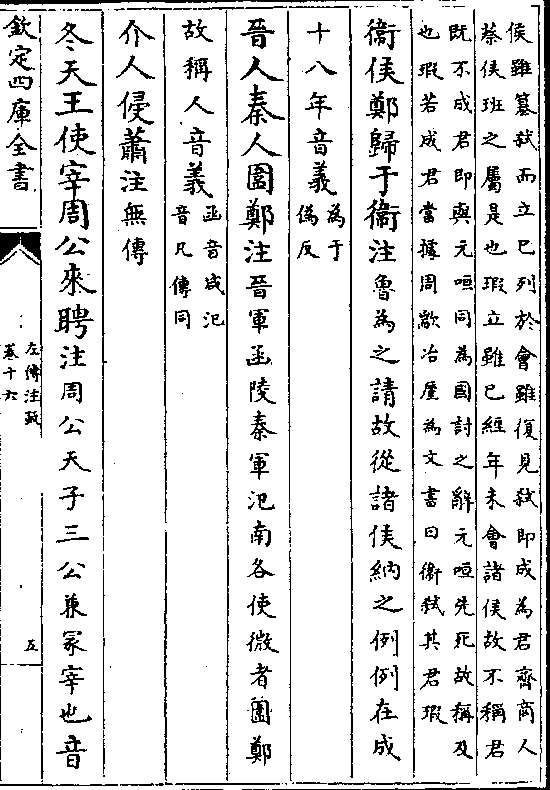 侯雖簒弑而立已列於會雖復見弑即成為君齊商人
蔡侯班之屬是也瑕立雖已經年未會諸侯故不稱君
既不成君即與元咺同為國討之辭元咺先死故稱及
也瑕若成君當據周歂冶廑為文書曰衛弑其君瑕
衞侯鄭歸于衞注魯為之請故從諸侯納之例例在成
十八年音義為于
偽反
晉人秦人圍鄭注晉軍函陵秦軍氾南各使微者圍鄭
故稱人音義函音咸氾
音凡傳同
介人侵蕭注無傳
冬天王使宰周公來聘注周公天子三公兼冢宰也音
欽定四庫全書
左傳注疏
卷十六
五